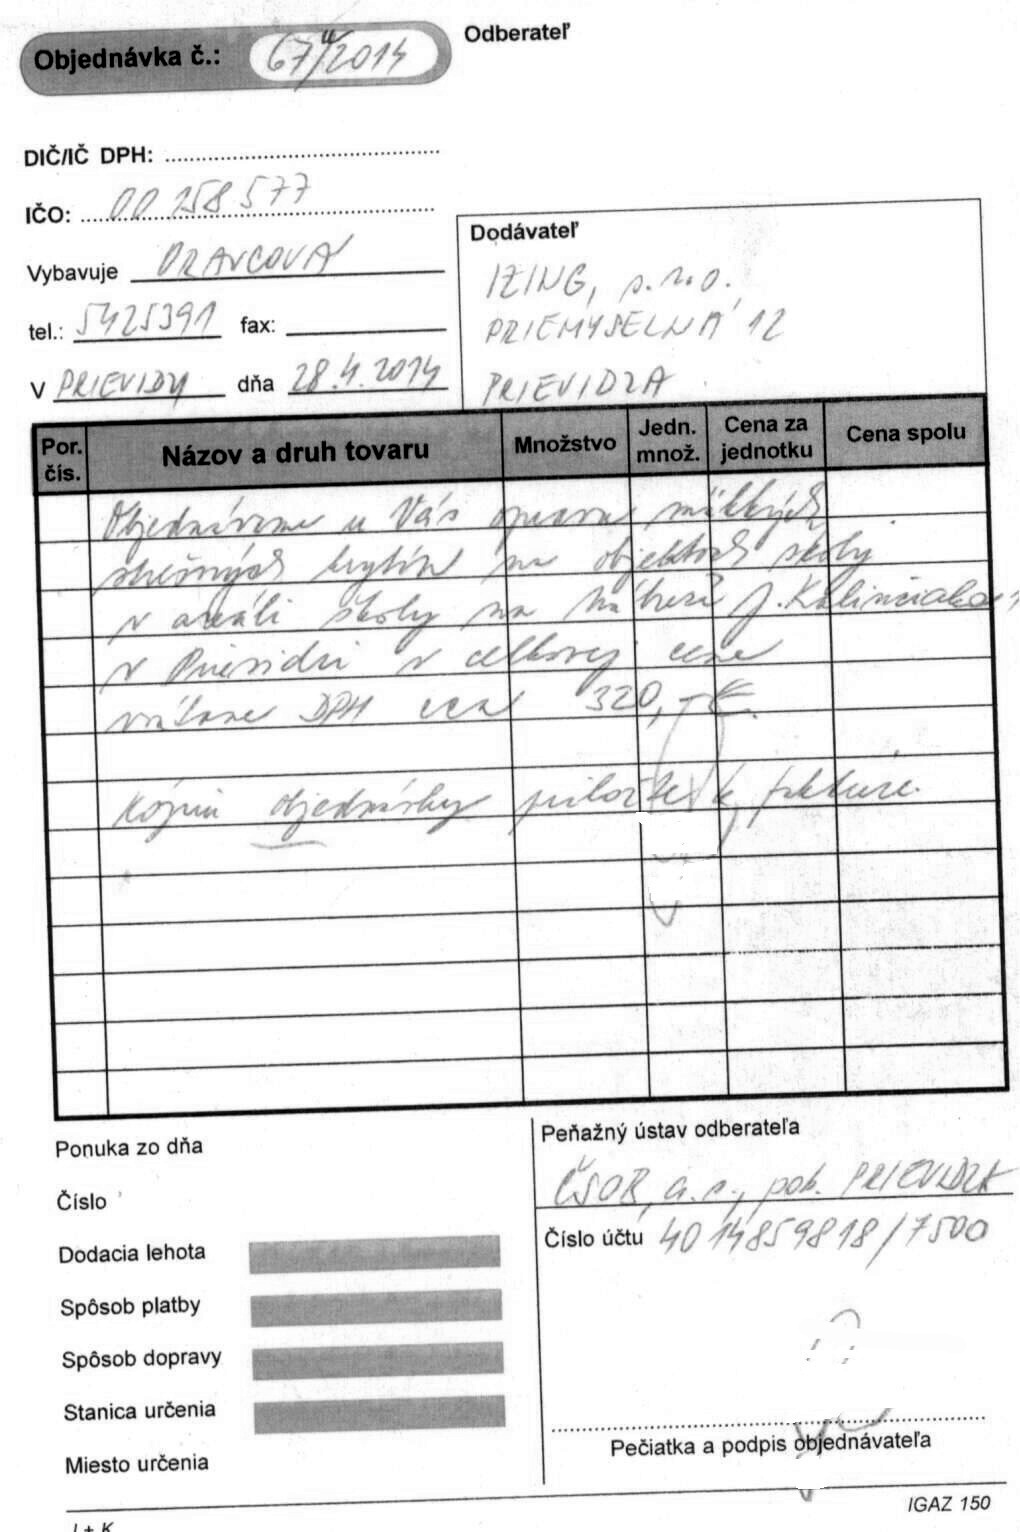 Objednávka č.: 67/2014
Odberateľ
DIČ/IČ DPH:
IČO: 00 158 577
Vybavuje ORAVCOVÁ
tel.: 5425391 fax:
V PRIEVIDZI dňa 28.4.2014
Dodávateľ
IZING, s.r.o.
PRIEMYSELNÁ 12
PRIEVIDZA
Por. čís. Názov a druh tovaru Množstvo Jedn. množ. Cena za jednotku Cena spolu
Objednávame u Vás opravu mäkkých
strešných krytín na objektoch školy
v areáli školy na Nábreží J. Kalinčiaka 1
v Prievidzi v celkovej cene
vrátane DPH cca 320,-€.
Kópiu objednávky priložte k faktúre.
Ponuka zo dňa
Číslo
Dodacia lehota
Spôsob platby
Spôsob dopravy
Stanica určenia
Miesto určenia
Peňažný ústav odberateľa
ČSOB, a.s., pob. PRIEVIDZA
Číslo účtu 4014859818/7500
Pečiatka a podpis objednávateľa
IGAZ 150